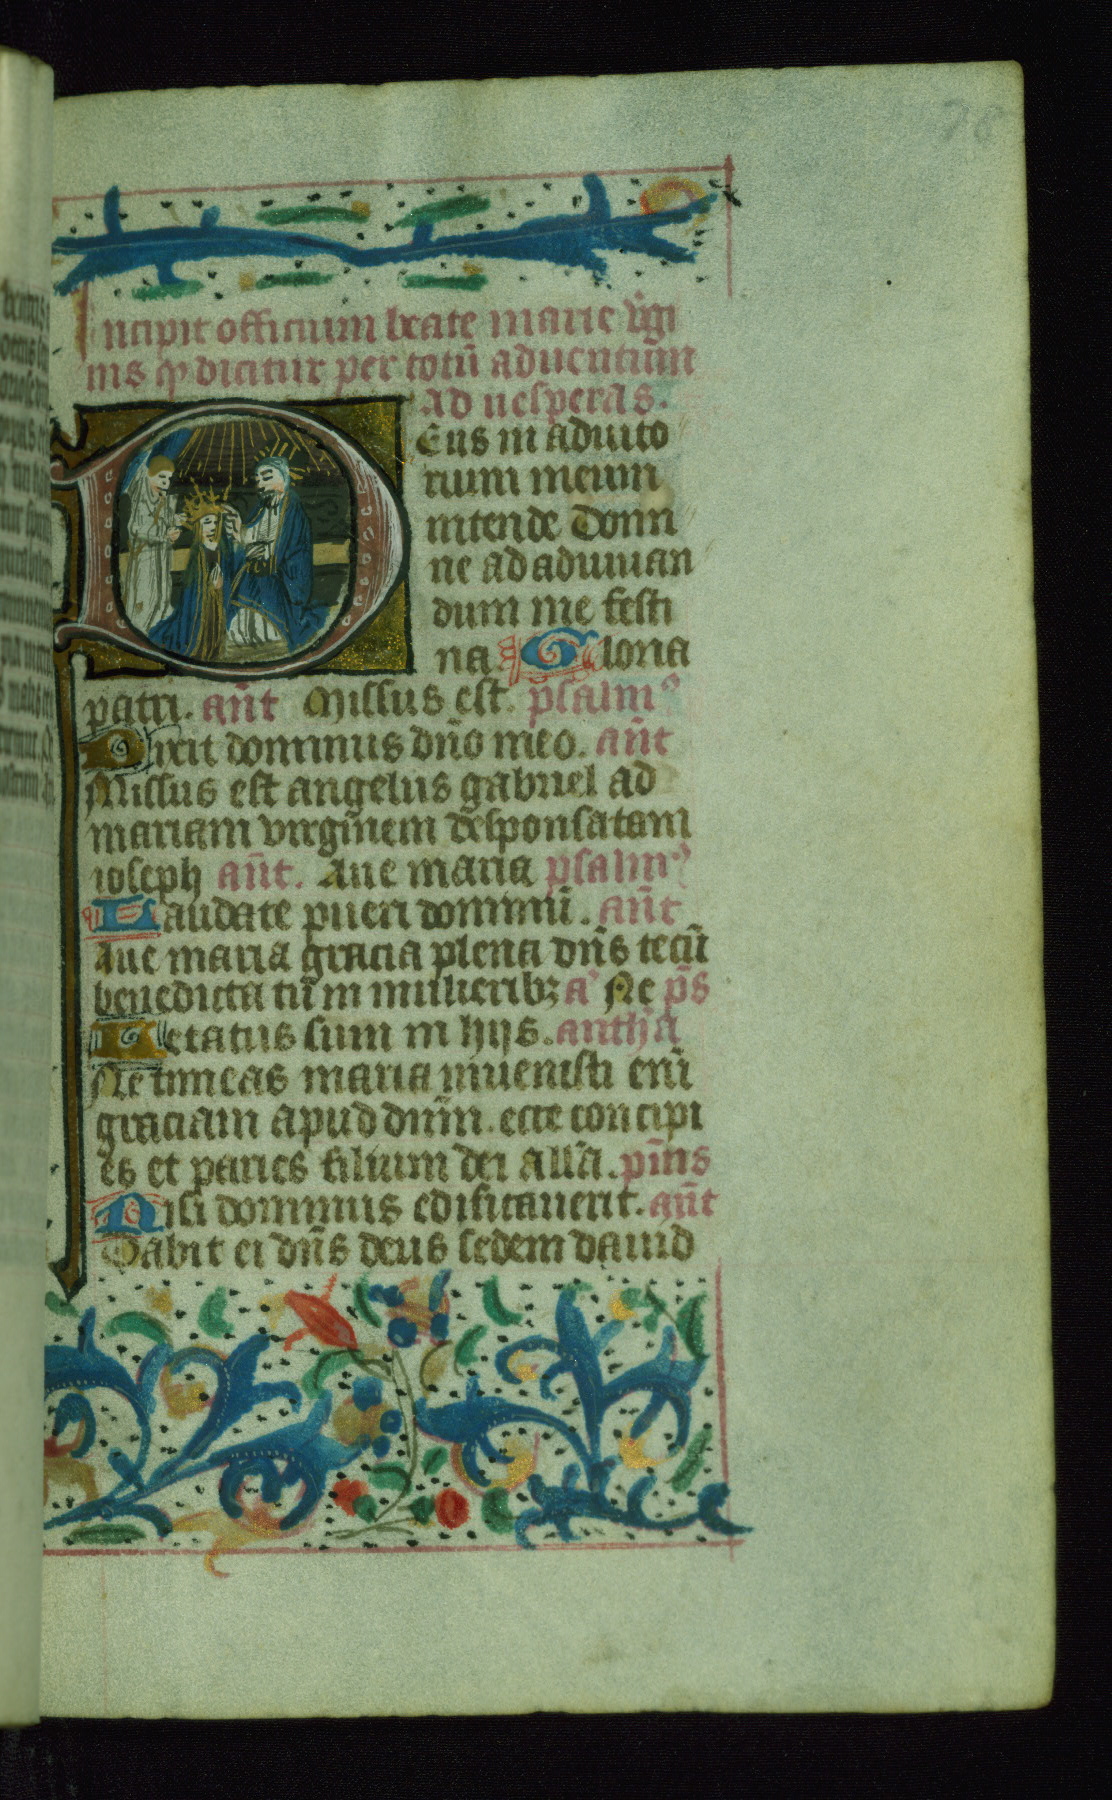 78
Incipit officium beate marie v̄gi
nis qͥ dicitur per totū aduentum
ad uesperas.
Deus in adiuto
rium meum
intende Domi
ne ad adiuuan
dum me festi
na Gloria
patri. an̄t Missus est. psalmꝰ
Dixit dominus dn̄o meo. an̄t
Missus est angelus gabriel ad
mariam virginem desponsatam
ioseph an̄t. Aue maria psalmꝰ
Laudate pueri dominū. an̄t
Aue maria gracia plena dn̄s tecū
benedicta tu in mulieribꝫ aͣ Ne ps̄
Letatus sum in hijs. anth̄a
Ne timeas maria inuenisti eni̅
graciam apud dnm̄. ecce concipi
es et paries filium dei all̄a. pm̄s
Nisi dominus edificauerit. an̄t
Dabit ei dn̄s deus sedem dauid